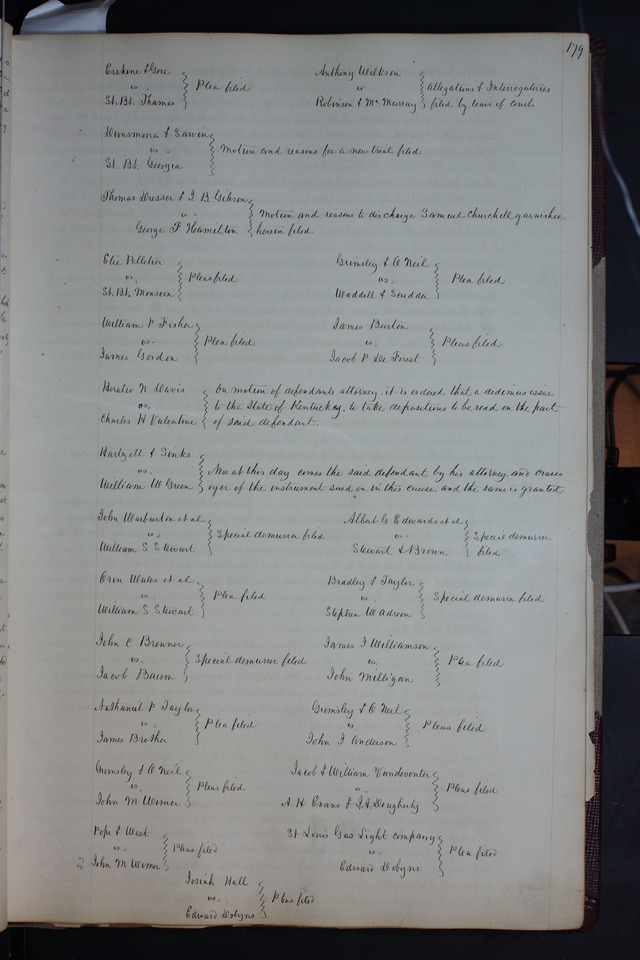 179
Erskine & Gore
vs. Plea filed
St. Bt. Thames
Anthony Wilkson
vs Allegations & Interrogatories
Robinson & McMurray filed by leave of court
Dinsmoore & Sawin
vs. Motion and reasons for a new trial filed
St. Bt. Georgia
Thomas Dresser & J. B. Gibson
vs. Motion and reasons to discharge Samuel Churchell garnishee
George F Hamilton herein filed
Elie Pelletier
vs. Pleas filed
St. Bt. Monsoon
Grimsley & O Neil
vs. Plea filed
Waddell & Scudder
William P Fisher
vs. Plea filed
James Gordon
James Burton
vs. Pleas filed
Jacob P De Forest
Horatio N Davis On motion of defendants attorney, it is ordered that a dedimus issue
vs. to the State of Kentuckey, to take depositions to be read on the part
Charles H Valentine of said defendant.
Hartzell & Sinks
vs. Now at this day comes the said defendant by his attorney, and craves
William W Green oyer of the instrument sued on in this cause and the same is granted
John Warburton et al
vs. Special demurrer filed
William S Stewart
Albert G Edwards et al
vs. Special demurrer
Stewart & Brown filed
Orin Wales et al
vs. Plea filed
William S Stewart
Bradley & Taylor
vs Special demurrer filed
Stephen W Adreon
John C Brenner
vs. Special demurrer filed
Jacob Baum
James J Williamson
vs. Plea filed
John Milligan
Nathaniel P Taylor
vs Plea filed
James Brother
Grimsley & O Neil
vs. Pleas filed
John J Anderson
Grimsley & O Neil
vs. Pleas filed
John M Wimer
Jacob & William Vandeventer
vs. Pleas filed
A. H. Evans & Dougherty
Pope & West
vs. Pleas filed
John M Wimer
St Louis Gas Light Company
vs. Plea filed
Edward Dobyns
Josiah Hall
vs. Pleas filed
Edward Dobyns